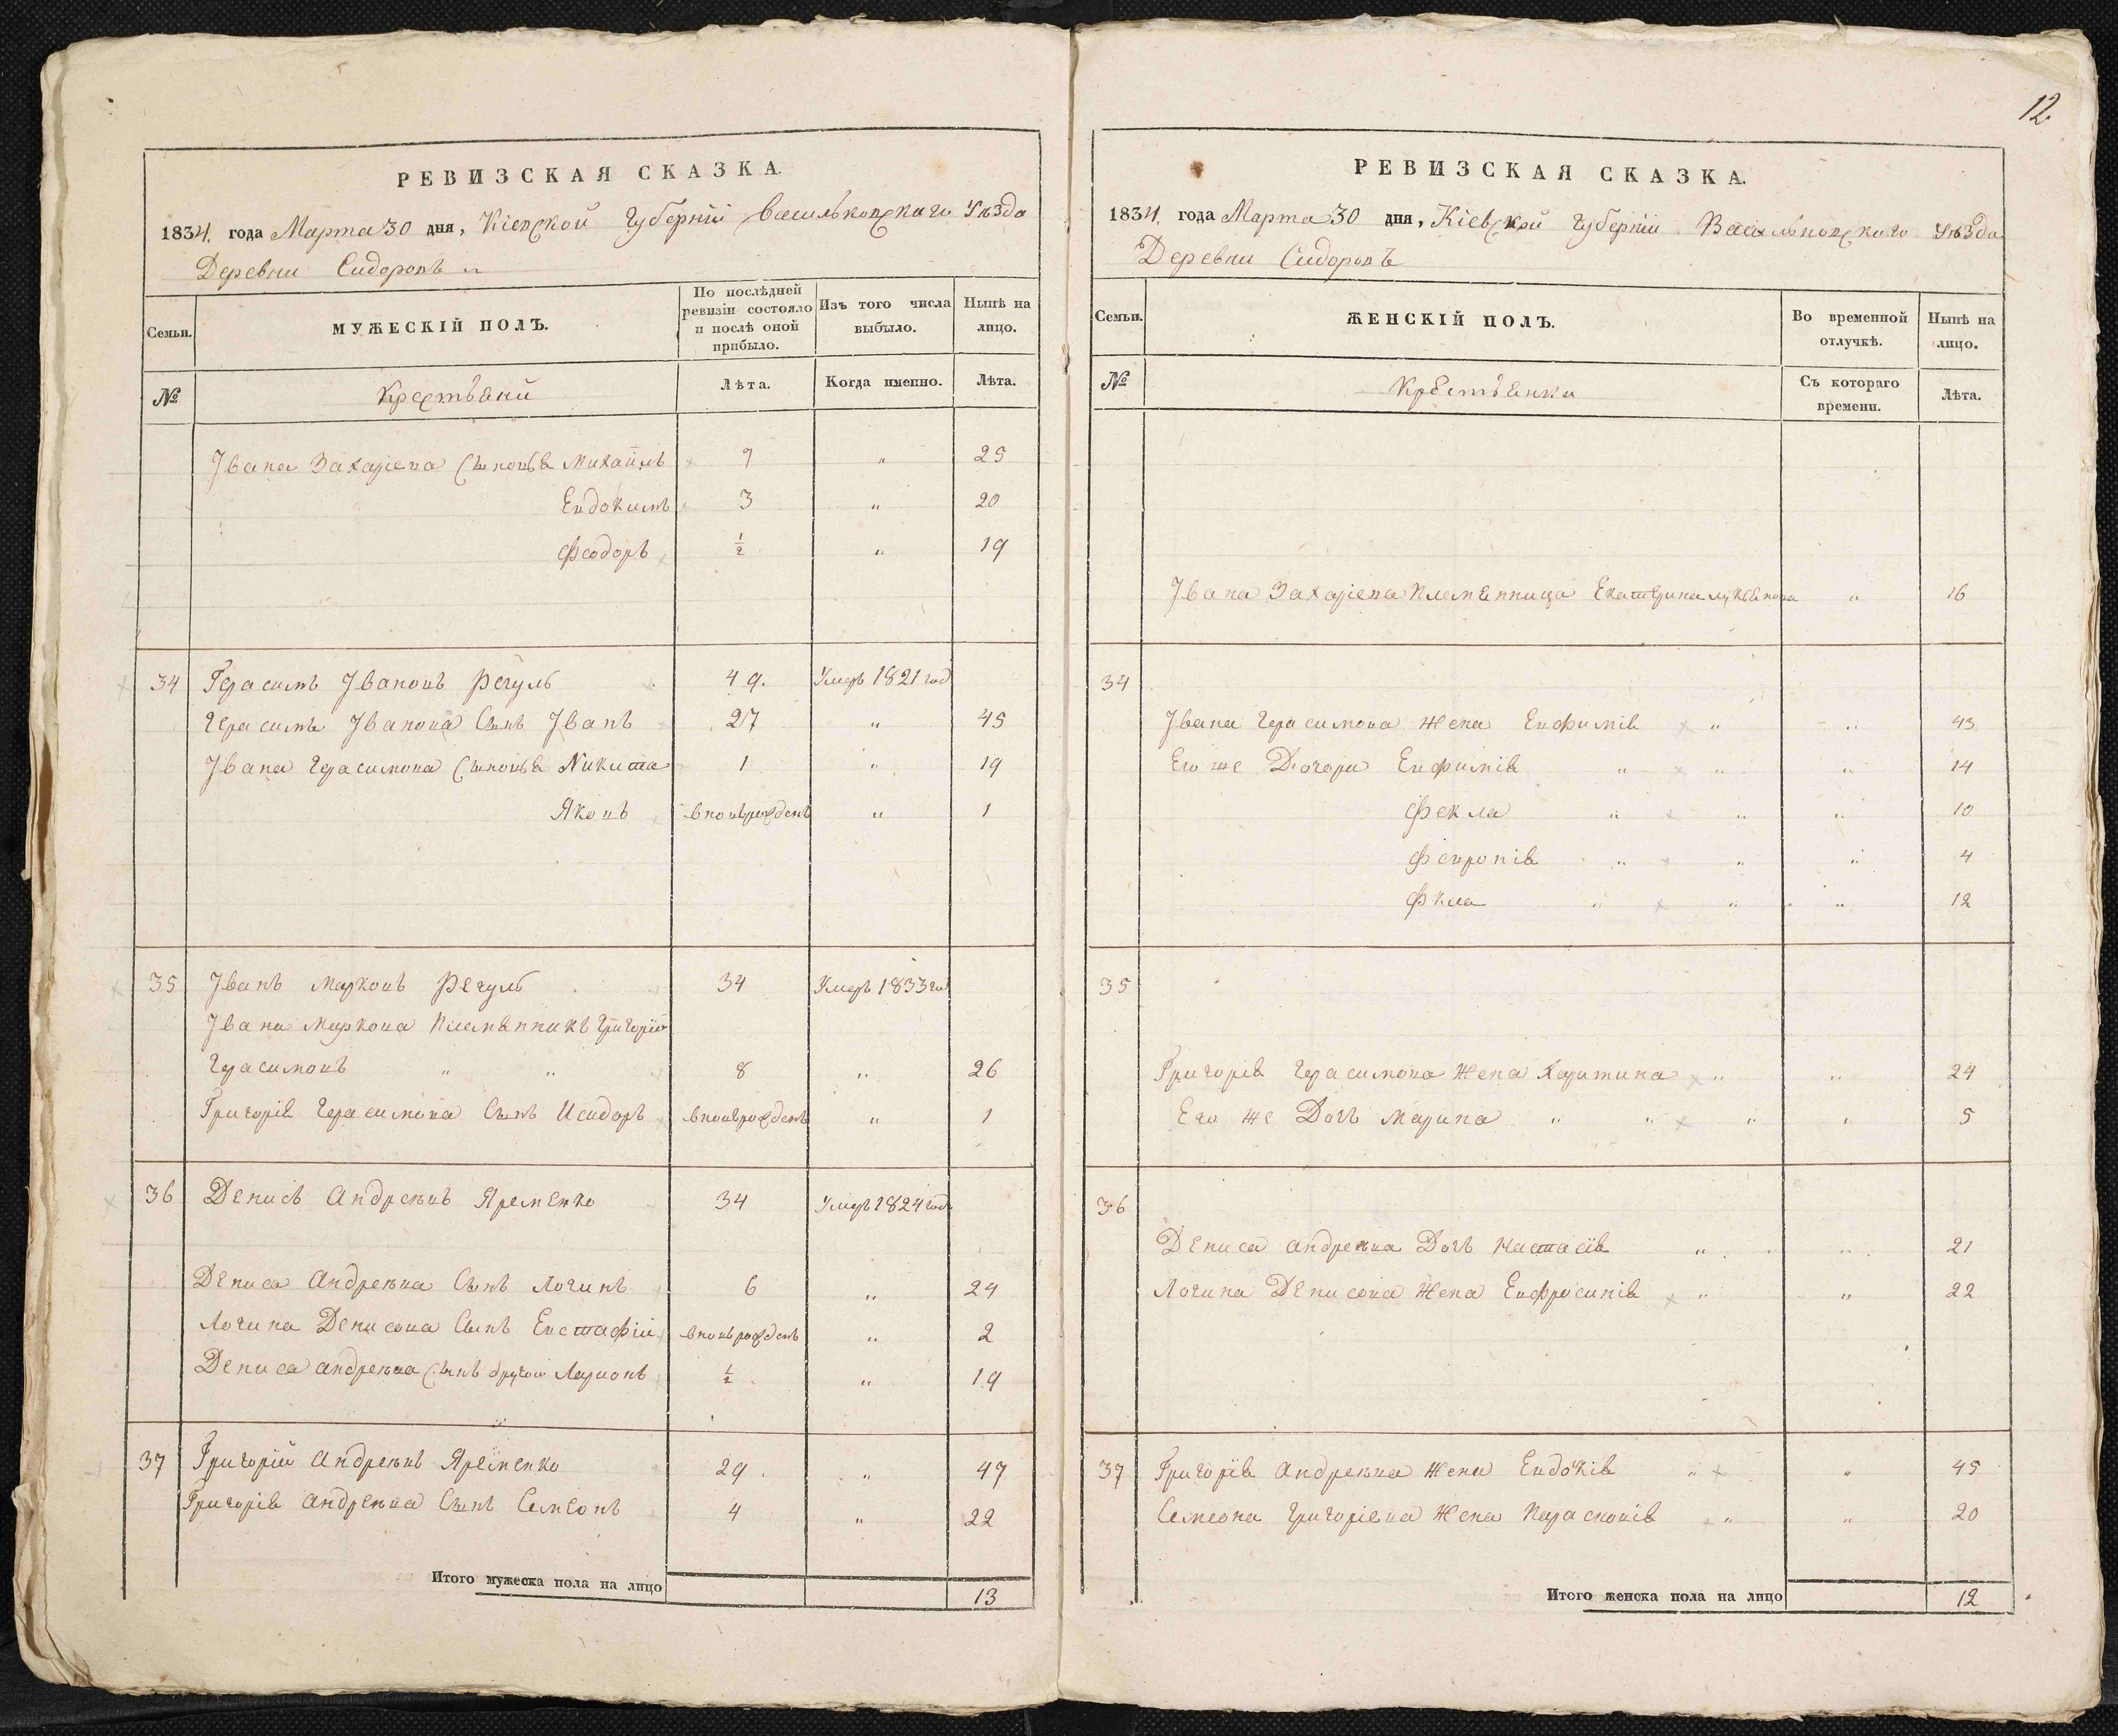 12
РЕВИЗСКАЯ СКАЗКА.
1834. года Марта 30 дня, Кіевской Губерніи Васильковскаго Уѣзда
Деревни Сидоровъ
Семьи. МУЖЕСКІЙ ПОЛЪ. По послѣдней ревизіи состояло и послѣ оной прибыло. Изъ того числа выбыло. Нынѣ на лицо.
№ Крестьяни Лѣта. Когда именно. Лѣта.
Івана Захаріева Сыновья Михаилъ 7 " 25
Евдокимъ 3 " 20
Феодоръ ½ " 19
34 Герасимъ Івановъ Регуль 49. Умеръ 1821 год
Герасима Іванова Сынъ Іванъ 27 " 45
Івана Герасимова Сыновья Никита 1 " 19
Яковъ вновьрожденъ " 1
35 Іванъ Марковъ Регуль 34 Умеръ 1833 го
Івана Маркова Племянникъ Григорій
Герасимовъ " " 8 " 26
Григорія Герасимова Сынъ Исидоръ вновьрожденъ " 1
36 Денисъ Андреевъ Яременко 34 Умеръ 1824 год
Дениса Андреева Сынъ Логинъ 6 " 24
Логина Денисова Сынъ Евстафій вновьрожденъ " 2
Дениса Андреева Сынъ другой Ларионъ ½ " 19
37 Григорій Андреевъ Яременко 29. " 47
Григорія Андреева Сынъ Семеонъ 4 " 22
Итого мужеска пола на лицо 13
РЕВИЗСКАЯ СКАЗКА.
1834. года Марта 30 дня, Кіевской Губерніи Васильковского Уѣзда
Деревни Сидоровъ
Семьи. ЖЕНСКІЙ ПОЛЪ. Во временной отлучкѣ. Нынѣ на лицо.
№ Крестьянки Съ котораго времени. Лѣта.
Івана Захаріева Племянница Екатерина " 16
34
Івана Герасимова жена Евфимія " " 43
Его же Дочери Евфимія " " " 14
Фекла " " " 10
Февронія " " " 4
Фкла " " " 12
35
Григорія Герасимова жена Харитина " " 24
Его же Дочь Марина " " " " 5
36
Дениса Андреева Дочь Настасія " " 21
Логина Денисова жена Евфросинія " " 22
37 Григорія Андреева жена Евдокія " " 45
Семеона Григоріева жена Парасковія " " 20
Итого женска пола на лицо 12